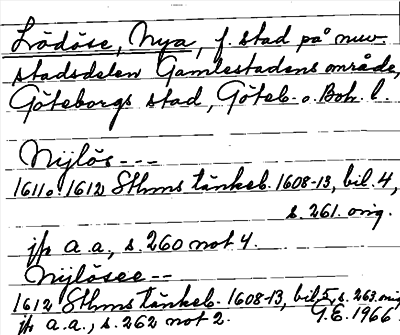 Lödöse, Nya, f. stad på nuv.
stadsdelen Gamlestadens område,
Göteborgs stad, Göteb. o. Boh. l.
Nyjlös---
1611 o. 1612 Sthms tänkeb. 1608-13, bil. 4,
s. 261. orig.
jfr a. a., s. 260 not 4.
Nyjlösee--
1612 Sthms tänkeb. 1608-13, bil. 5, s. 263. orig
jfr a. a., s. 262 not 2. G. E. 1966